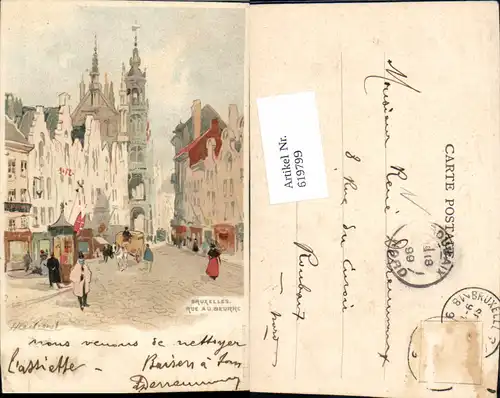 BRUXELLES.
RUE AU BEURRE
nous venons de nettoyer
l'assiette – Baisers à tous
Artikel Nr.
619799
CARTE POSTALE
Monsieur René
8 Rue du Curoir
Roubaix
Nord
NORD
BRUXELLES